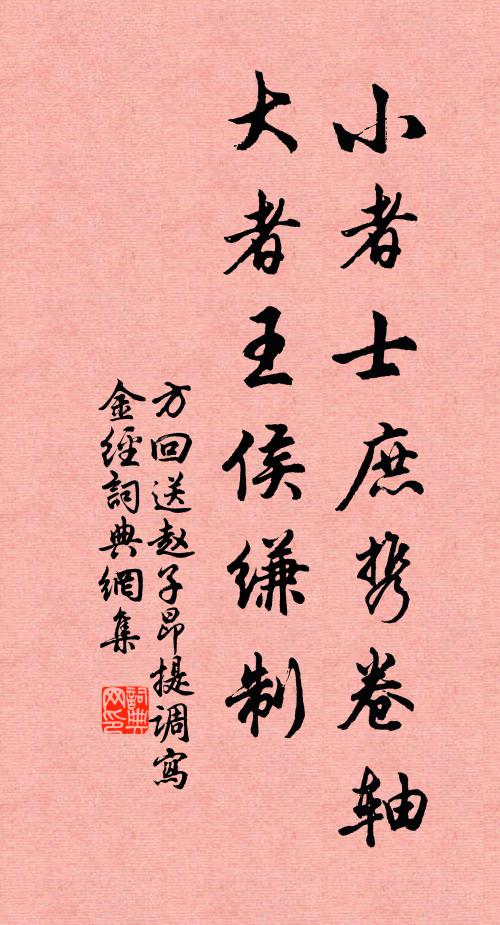 小者士庶携卷轴
大者王侯缣制
方回送赵子昂提调寫
金經詞典網集
詞典网印